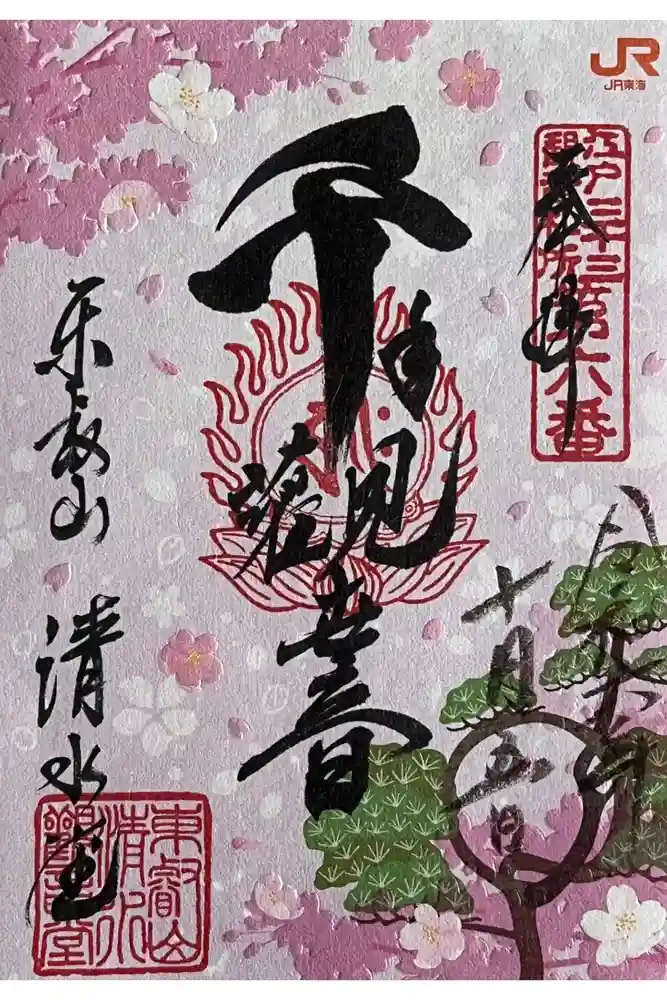 JR
JR東海
奉拝
江戸三十三
観音札所
第六番
令和六年
十月五日
千手
觀
世音
東叡山 清水堂
東叡山
清水
觀音堂